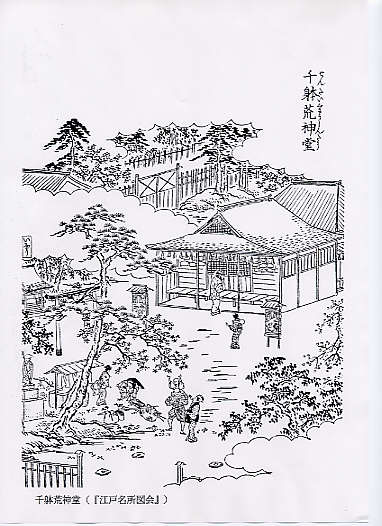 千躰荒神堂
千躰荒神堂（『江戸名所図会』）